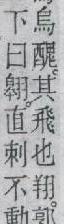 烏醜。其飛也翔。郭
下曰翺。直刺不動